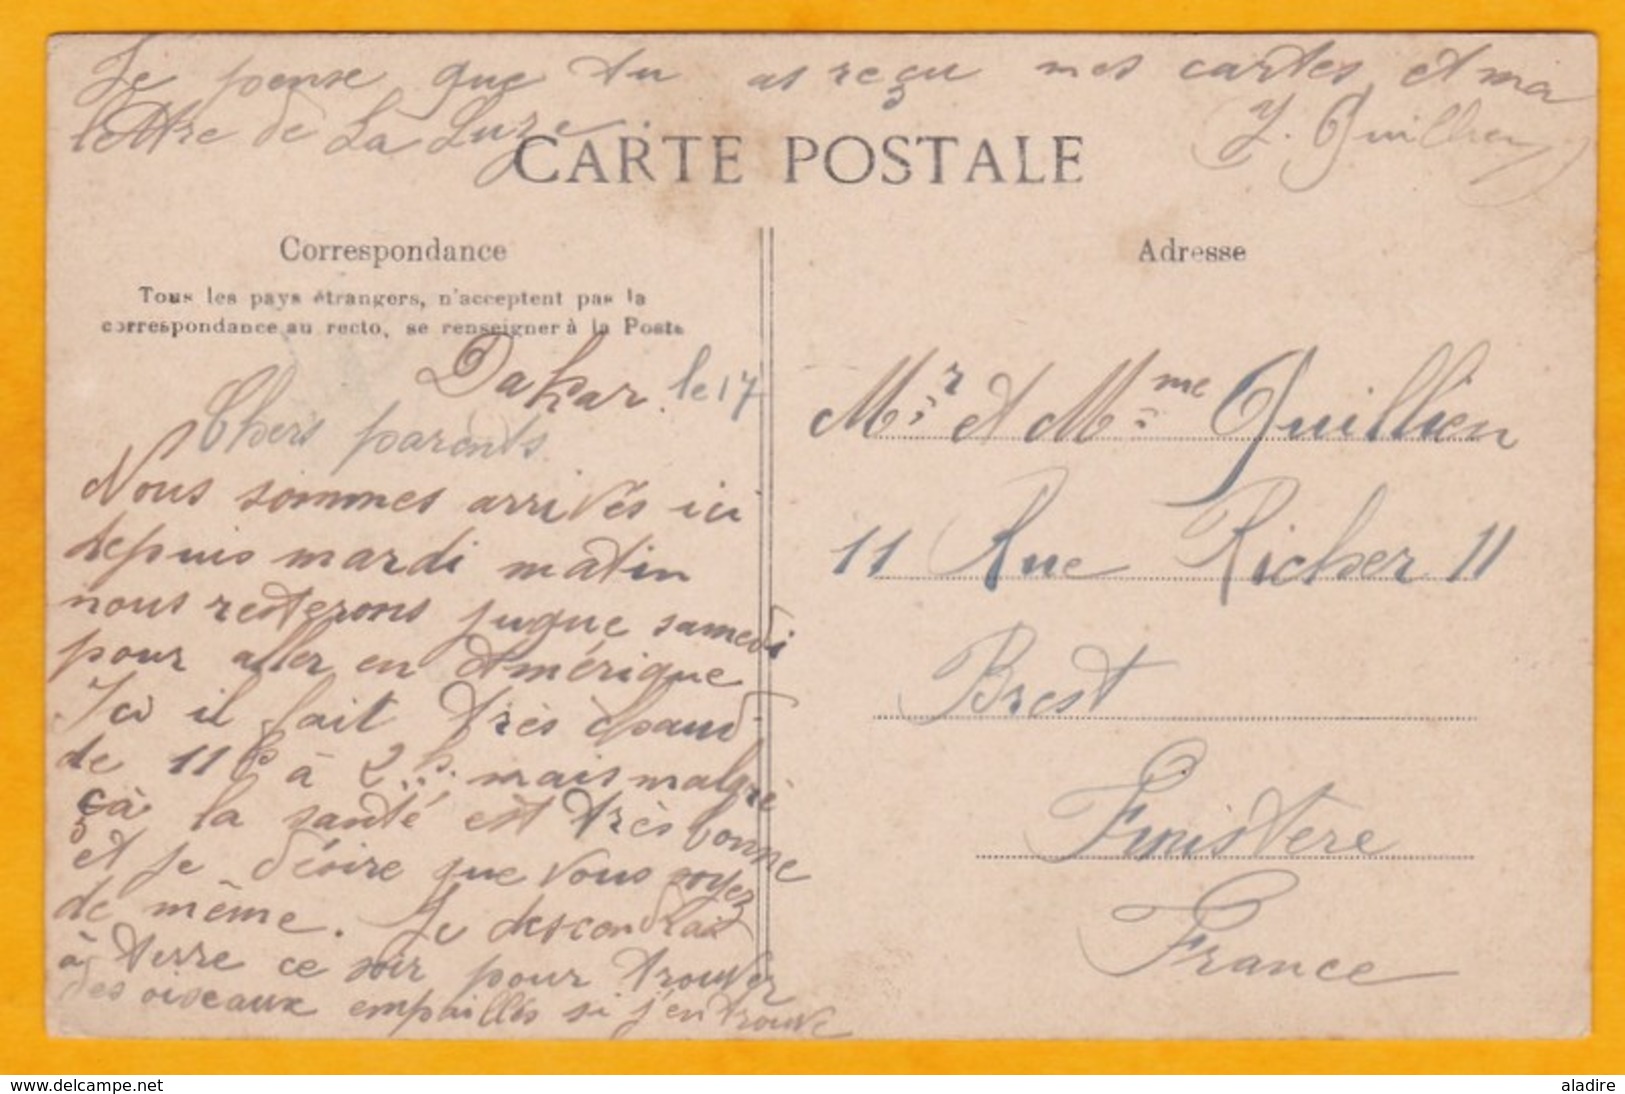 Je pense que tu as reçu mes cartes et ma
lettre de La Luze.
Y. Guillien
CARTE POSTALE
Correspondance
Tous les pays étrangers, n'acceptent pas la
correspondance au recto, se renseigner à la Poste
Dakar le 17
Chers parents
Nous sommes arrivés ici
depuis mardi matin
nous resterons juque samedi
pour aller en Amérique
Ici il fait très chaud
de 11h à 2h. mais malgré
çà la santé est très bonne
et je désire que vous soyez
de même. Je descendrai
à terre ce soir pour trouver
des oiseaux empaillés si j'en trouve
Adresse
Mr et Mme Guillien
11 Rue Richer 11
Brest
Finistere
France
www.delcampe.net
aladire